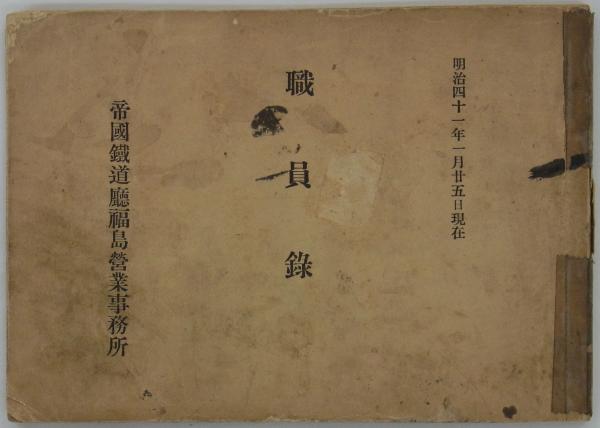 明治四十一年一月廿五日現在
職員錄
帝國鐵道廳福島營業事務所